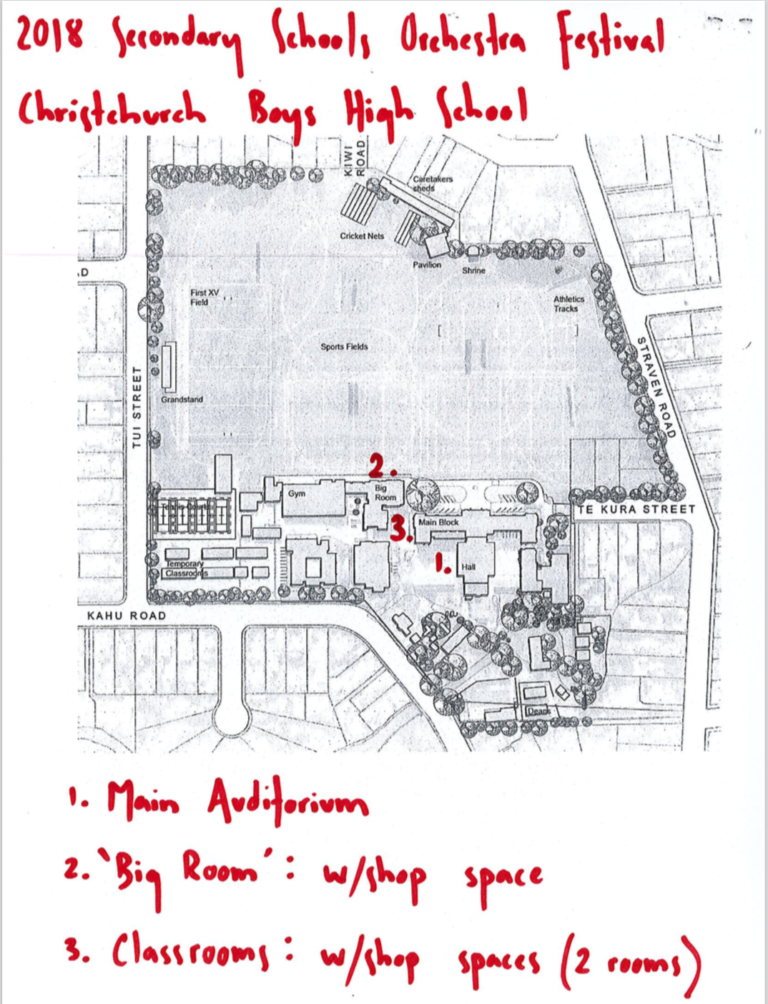 2018 Secondary Schools Orchestra Festival
Christchurch Boys High School
KIWI
ROAD
Caretakers
sheds
Cricket Nets
Pavilion
Shrine
D
First XV
Field
Athletics
Tracks
Sports Fields
STRAVEN ROAD
TUI STREET
Grandstand
2.
Gym
Big
Room
TE KURA STREET
3.
Main Block
1.
Hall
Temporary
Classrooms
KAHU ROAD
1. Main Auditorium
2. 'Big Room': w/shop space
3. Classrooms: w/shop spaces (2 rooms)